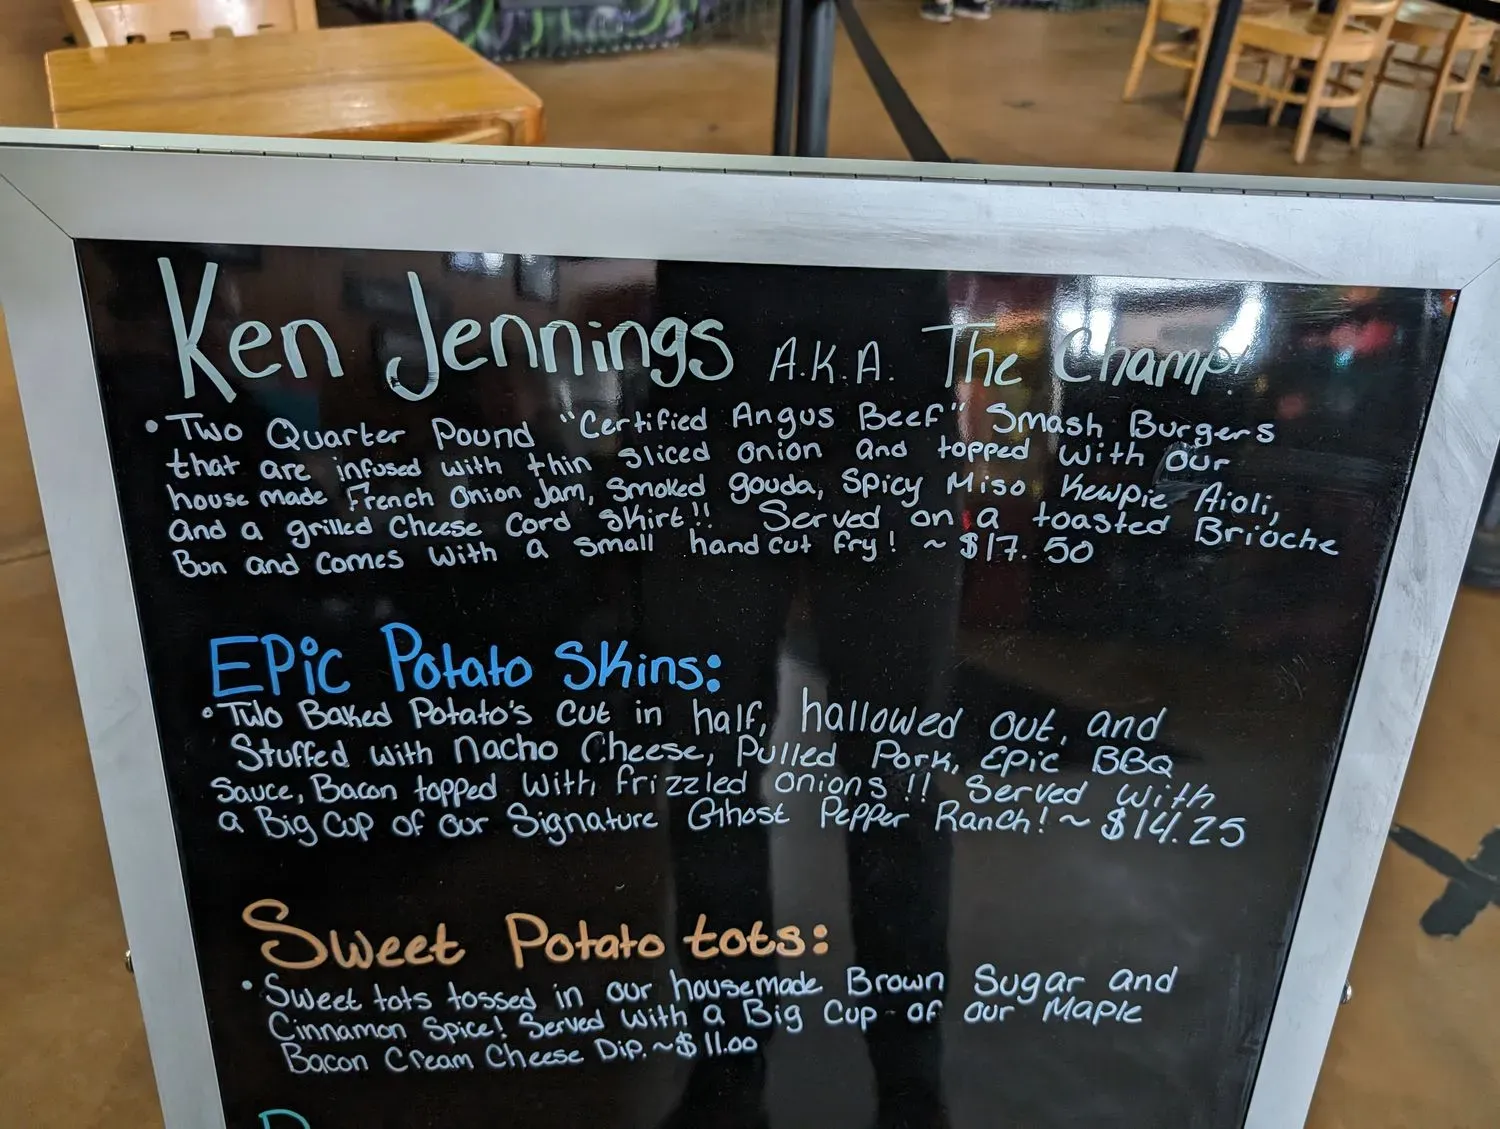 Ken Jennings A.K.A. The Champ!
• Two Quarter Pound "Certified Angus Beef" Smash Burgers
that are infused with thin sliced onion and topped with our
house made French Onion Jam, Smoked gouda, Spicy Miso Kewpie Aioli,
and a grilled Cheese Cord Skirt!! Served on a toasted Brioche
Bun and comes with a small hand cut fry! ~ $17.50
Epic Potato Skins:
• Two Baked Potato's cut in half, hallowed out, and
Stuffed with Nacho Cheese, Pulled Pork, Epic BBQ
Sauce, Bacon topped with frizzled onions!! Served with
a Big Cup of our Signature Ghost Pepper Ranch! ~ $14.25
Sweet Potato tots:
• Sweet tots tossed in our housemade Brown Sugar and
Cinnamon Spice! Served with a Big Cup of our Maple
Bacon Cream Cheese Dip. ~ $11.00